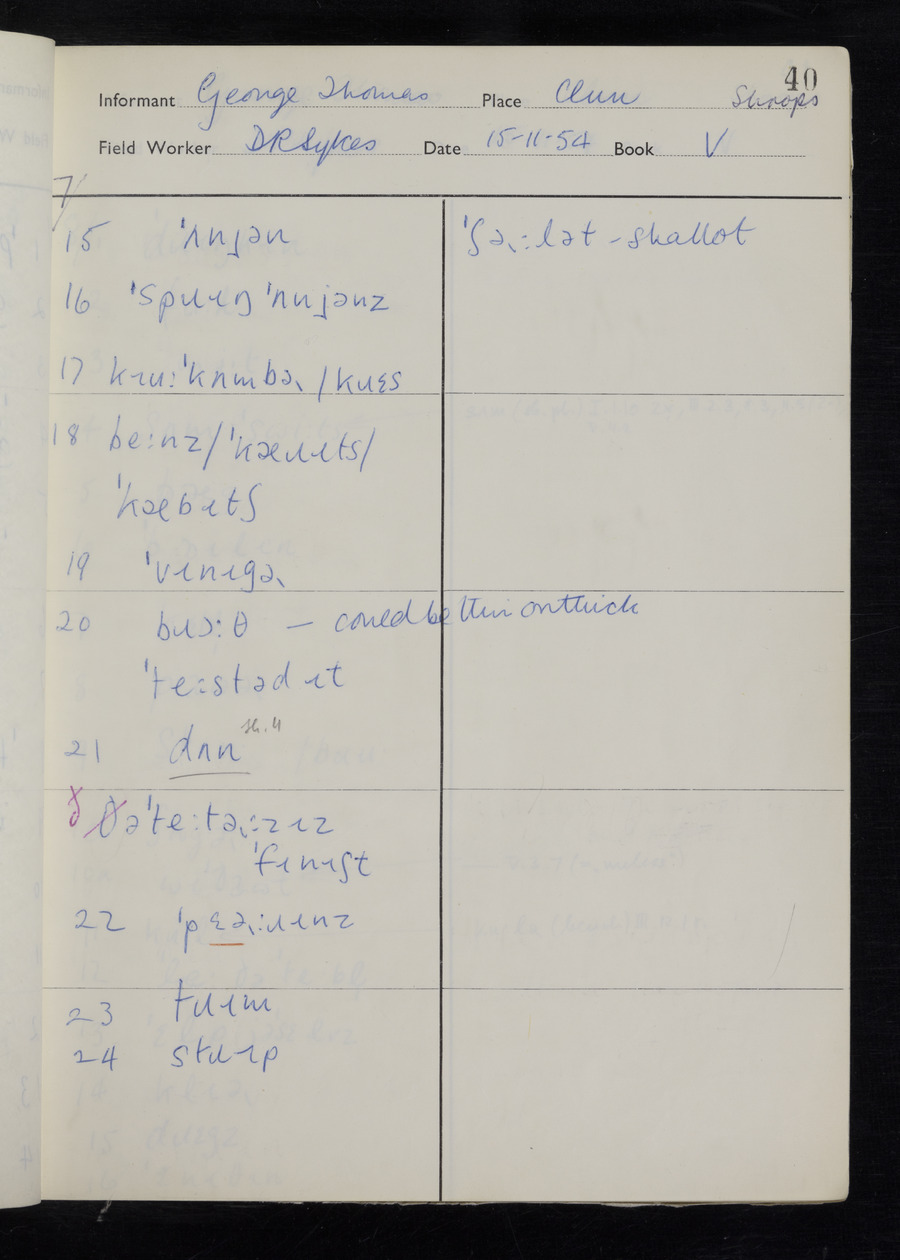 40
Informant George Thomas Place Clun Shrops
Field Worker D R Sykes Date 15-11-54 Book V
7/
15 ˈʌnjən
ˈʃəɹːlət - shallot
16 ˈspɹɪŋ ˈʌnjənz
17 kɹuːˈkʌmbəɹ /kɹɛs
18 beːnz/ˈkæɹɪts/
ˈkæbɪtʃ
19 ˈvɪnɪgəɹ
20 bɹɔːθ — could be thin or thick
ˈteːstəd ɪt
21 dʌn
ð ðəˈteːtəɹːz ɪz
ˈfɪnɪʃt
22 ˈpɛəɹːɹɪnz
23 tɹɪm
24 stɹɪp